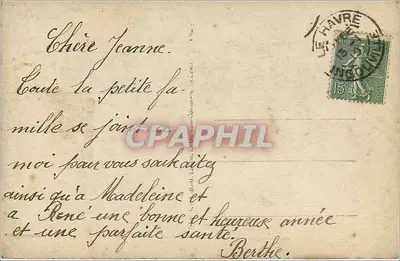 Chère Jeanne.
Toute la petite fa
mille se joint a
moi pour vous souhaitez
ainsi qu'a Madeleine et
a René une bonne et heureuse année
et une parfaite santé.
Berthe.
LE HAVRE
15
CPAPHIL